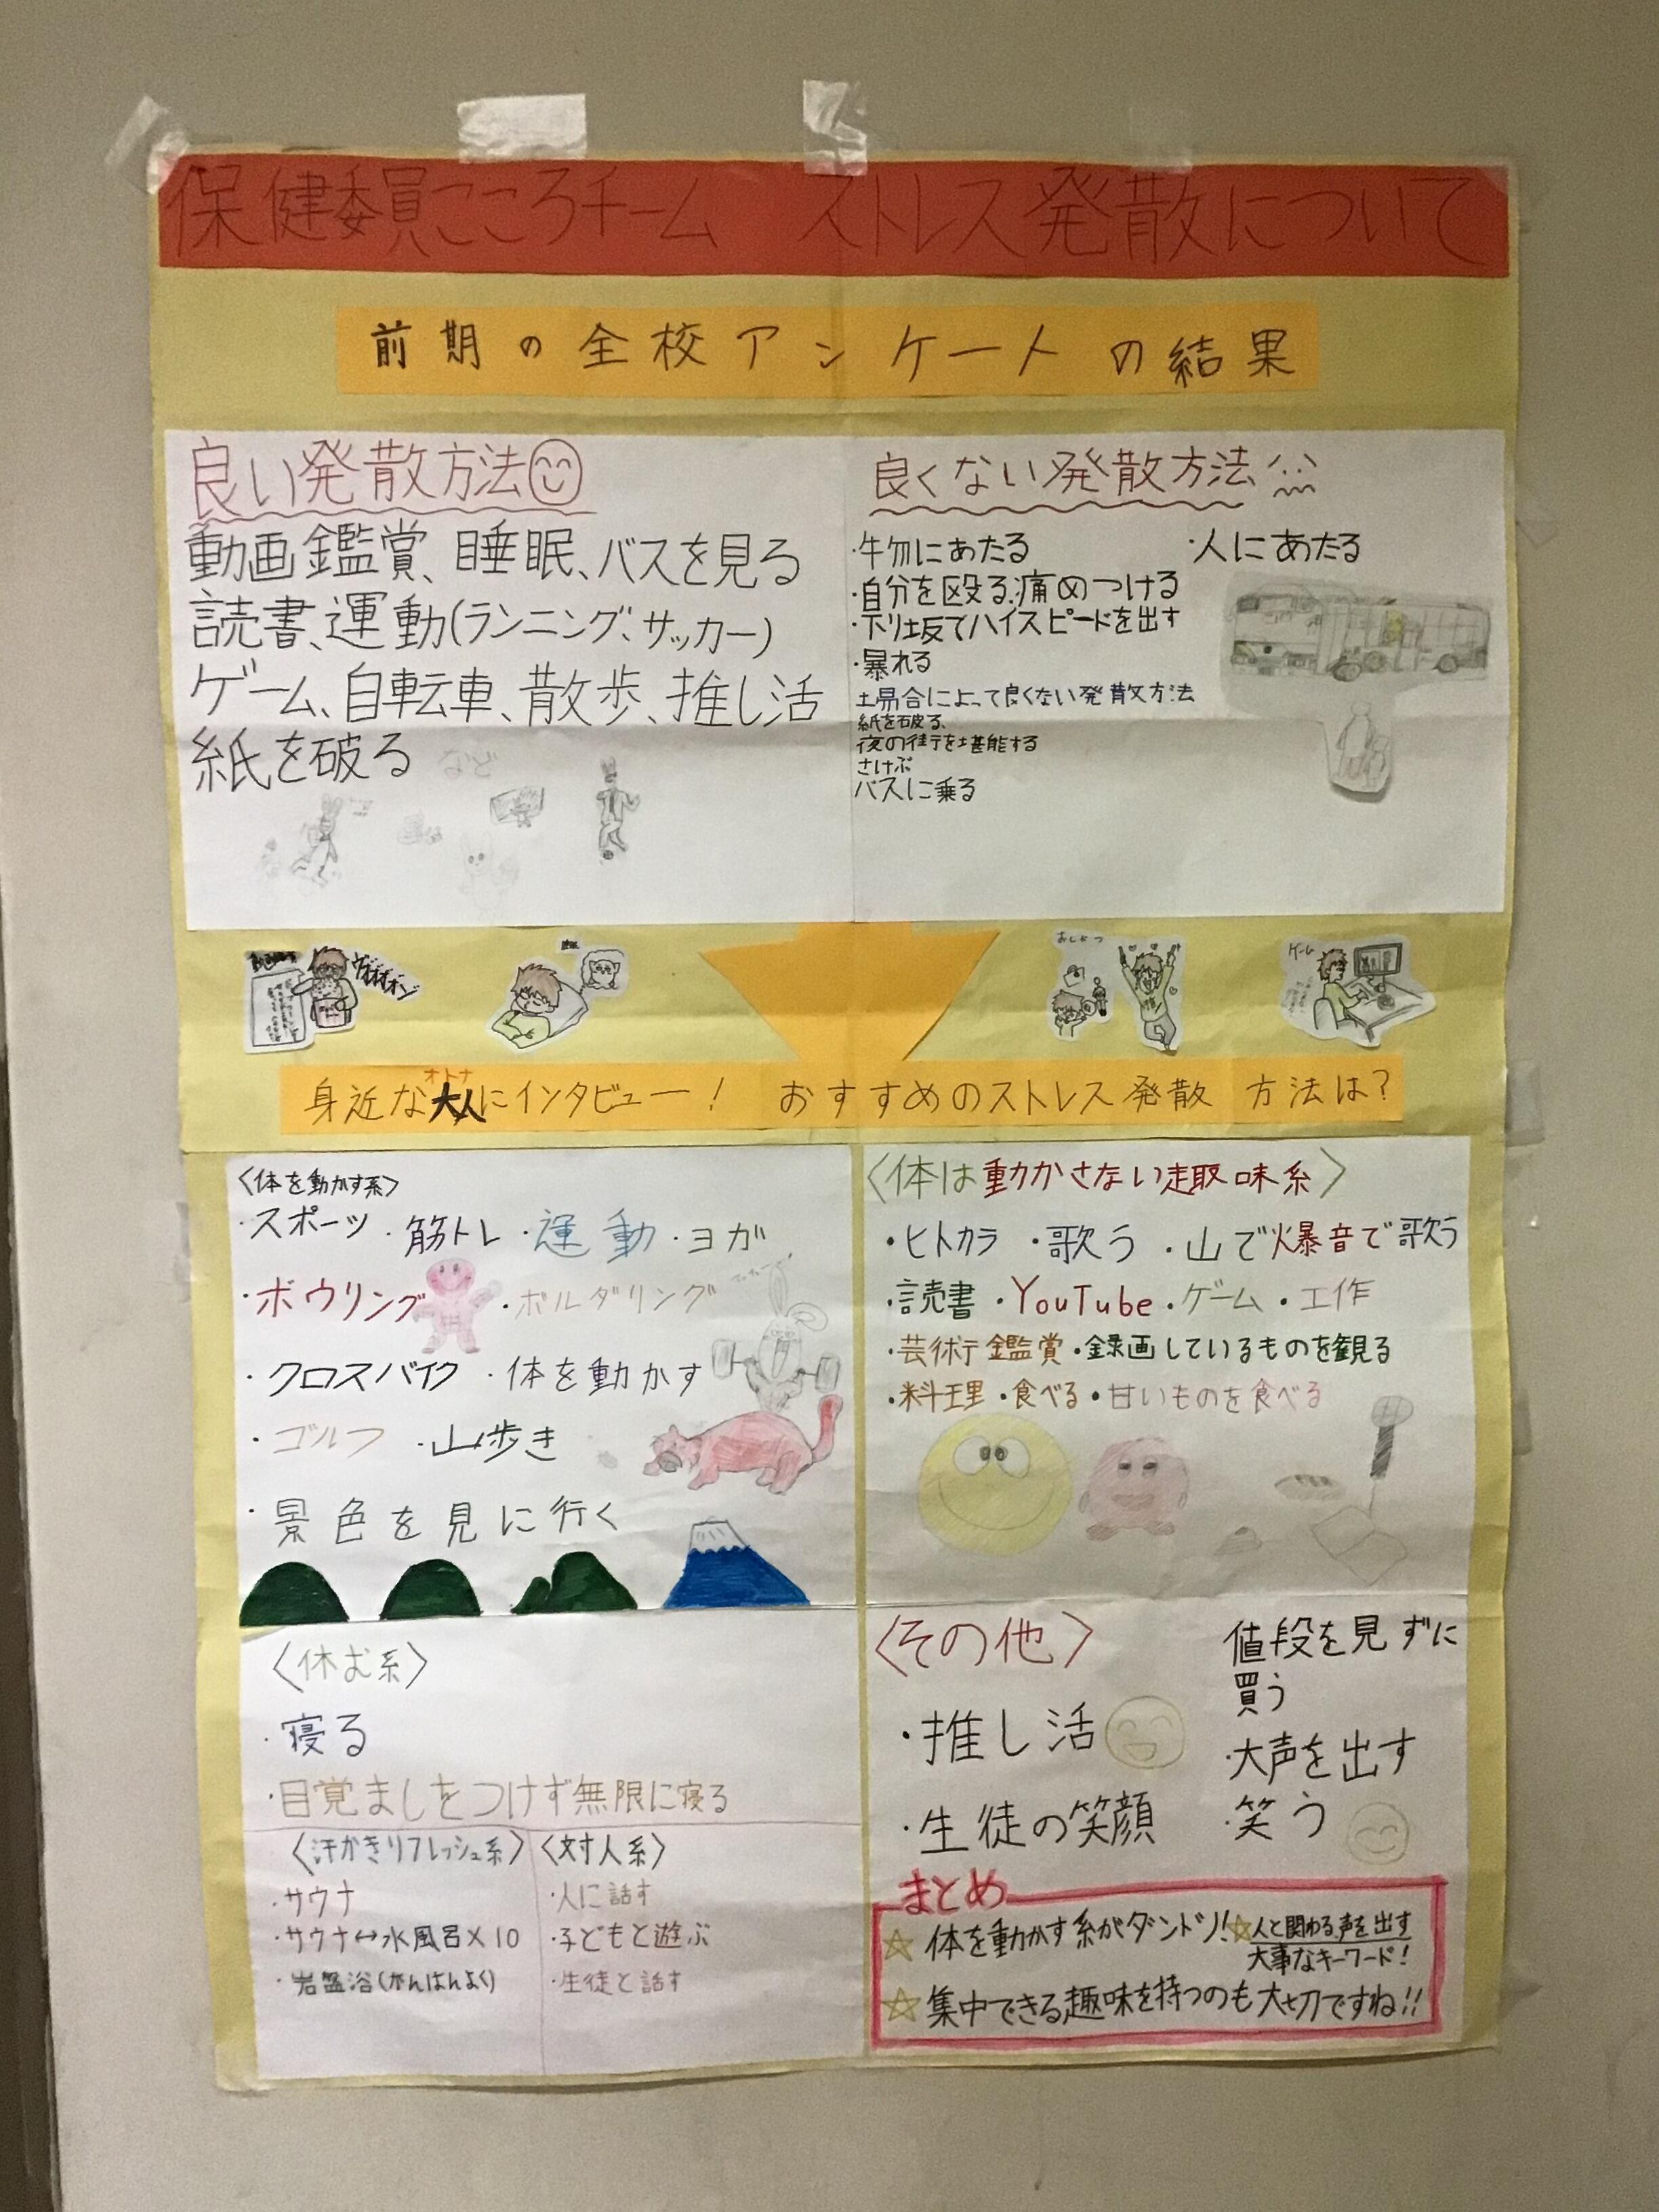 保健委員こころチーム ストレス発散について
前期の全校アンケートの結果
良い発散方法
動画鑑賞、睡眠、バスを見る
読書、運動(ランニング、サッカー)
ゲーム、自転車、散歩、推し活
紙を破る など
良くない発散方法
・物にあたる ・人にあたる
・自分を殴る.痛めつける
・下り坂でハイスピードを出す
・暴れる
場合によって良くない発散方法
紙を破る、
夜の街を堪能する
さけぶ
バスに乗る
ゲーム
オトナ
身近な大人にインタビュー! おすすめのストレス発散方法は?
〈体を動かす系〉
・スポーツ ・筋トレ ・運動 ・ヨガ
・ボウリング ・ボルダリング
・クロスバイク ・体を動かす
・ゴルフ ・山歩き
・景色を見に行く
〈体は動かさない趣味系〉
・ヒトカラ ・歌う ・山で爆音で歌う
・読書 ・YouTube ・ゲーム ・工作
・芸術鑑賞 ・録画しているものを観る
・料理 ・食べる ・甘いものを食べる
〈休む系〉
・寝る
・目覚ましをつけず無限に寝る
〈汗かきリフレッシュ系〉
・サウナ
・サウナ↔水風呂×10
・岩盤浴(がんばんよく)
〈対人系〉
・人に話す
・子どもと遊ぶ
・生徒と話す
〈その他〉
・推し活
・生徒の笑顔
値段を見ずに
買う
・大声を出す
・笑う
まとめ
☆体を動かす系がダントツ!☆人と関わる.声を出す
大事なキーワード!
☆集中できる趣味を持つのも大切ですね!!